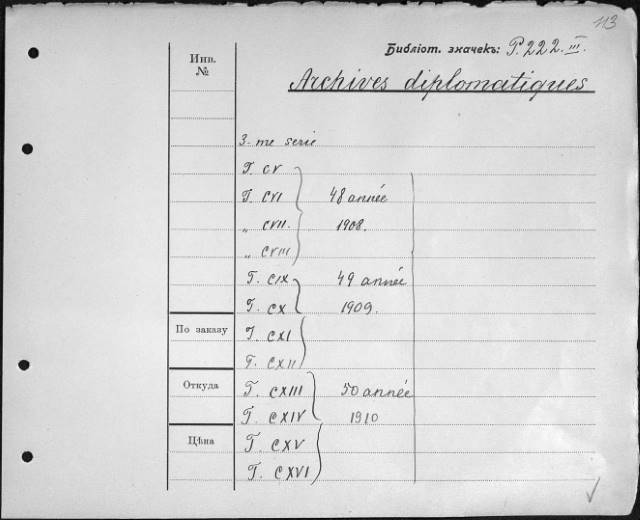 113
Библіот. значекъ: P. 222. III.
Archives diplomatiques
Инв. №
3-me serie
T. CV
T. CVI 48 année
„ CVII. 1908.
„ CVIII
T. CIX 49 année
T. CX 1909.
По заказу T. CXI
T. CXII
Откуда T. CXIII 50 année
T. CXIV 1910
Цѣна T. CXV
T. CXVI